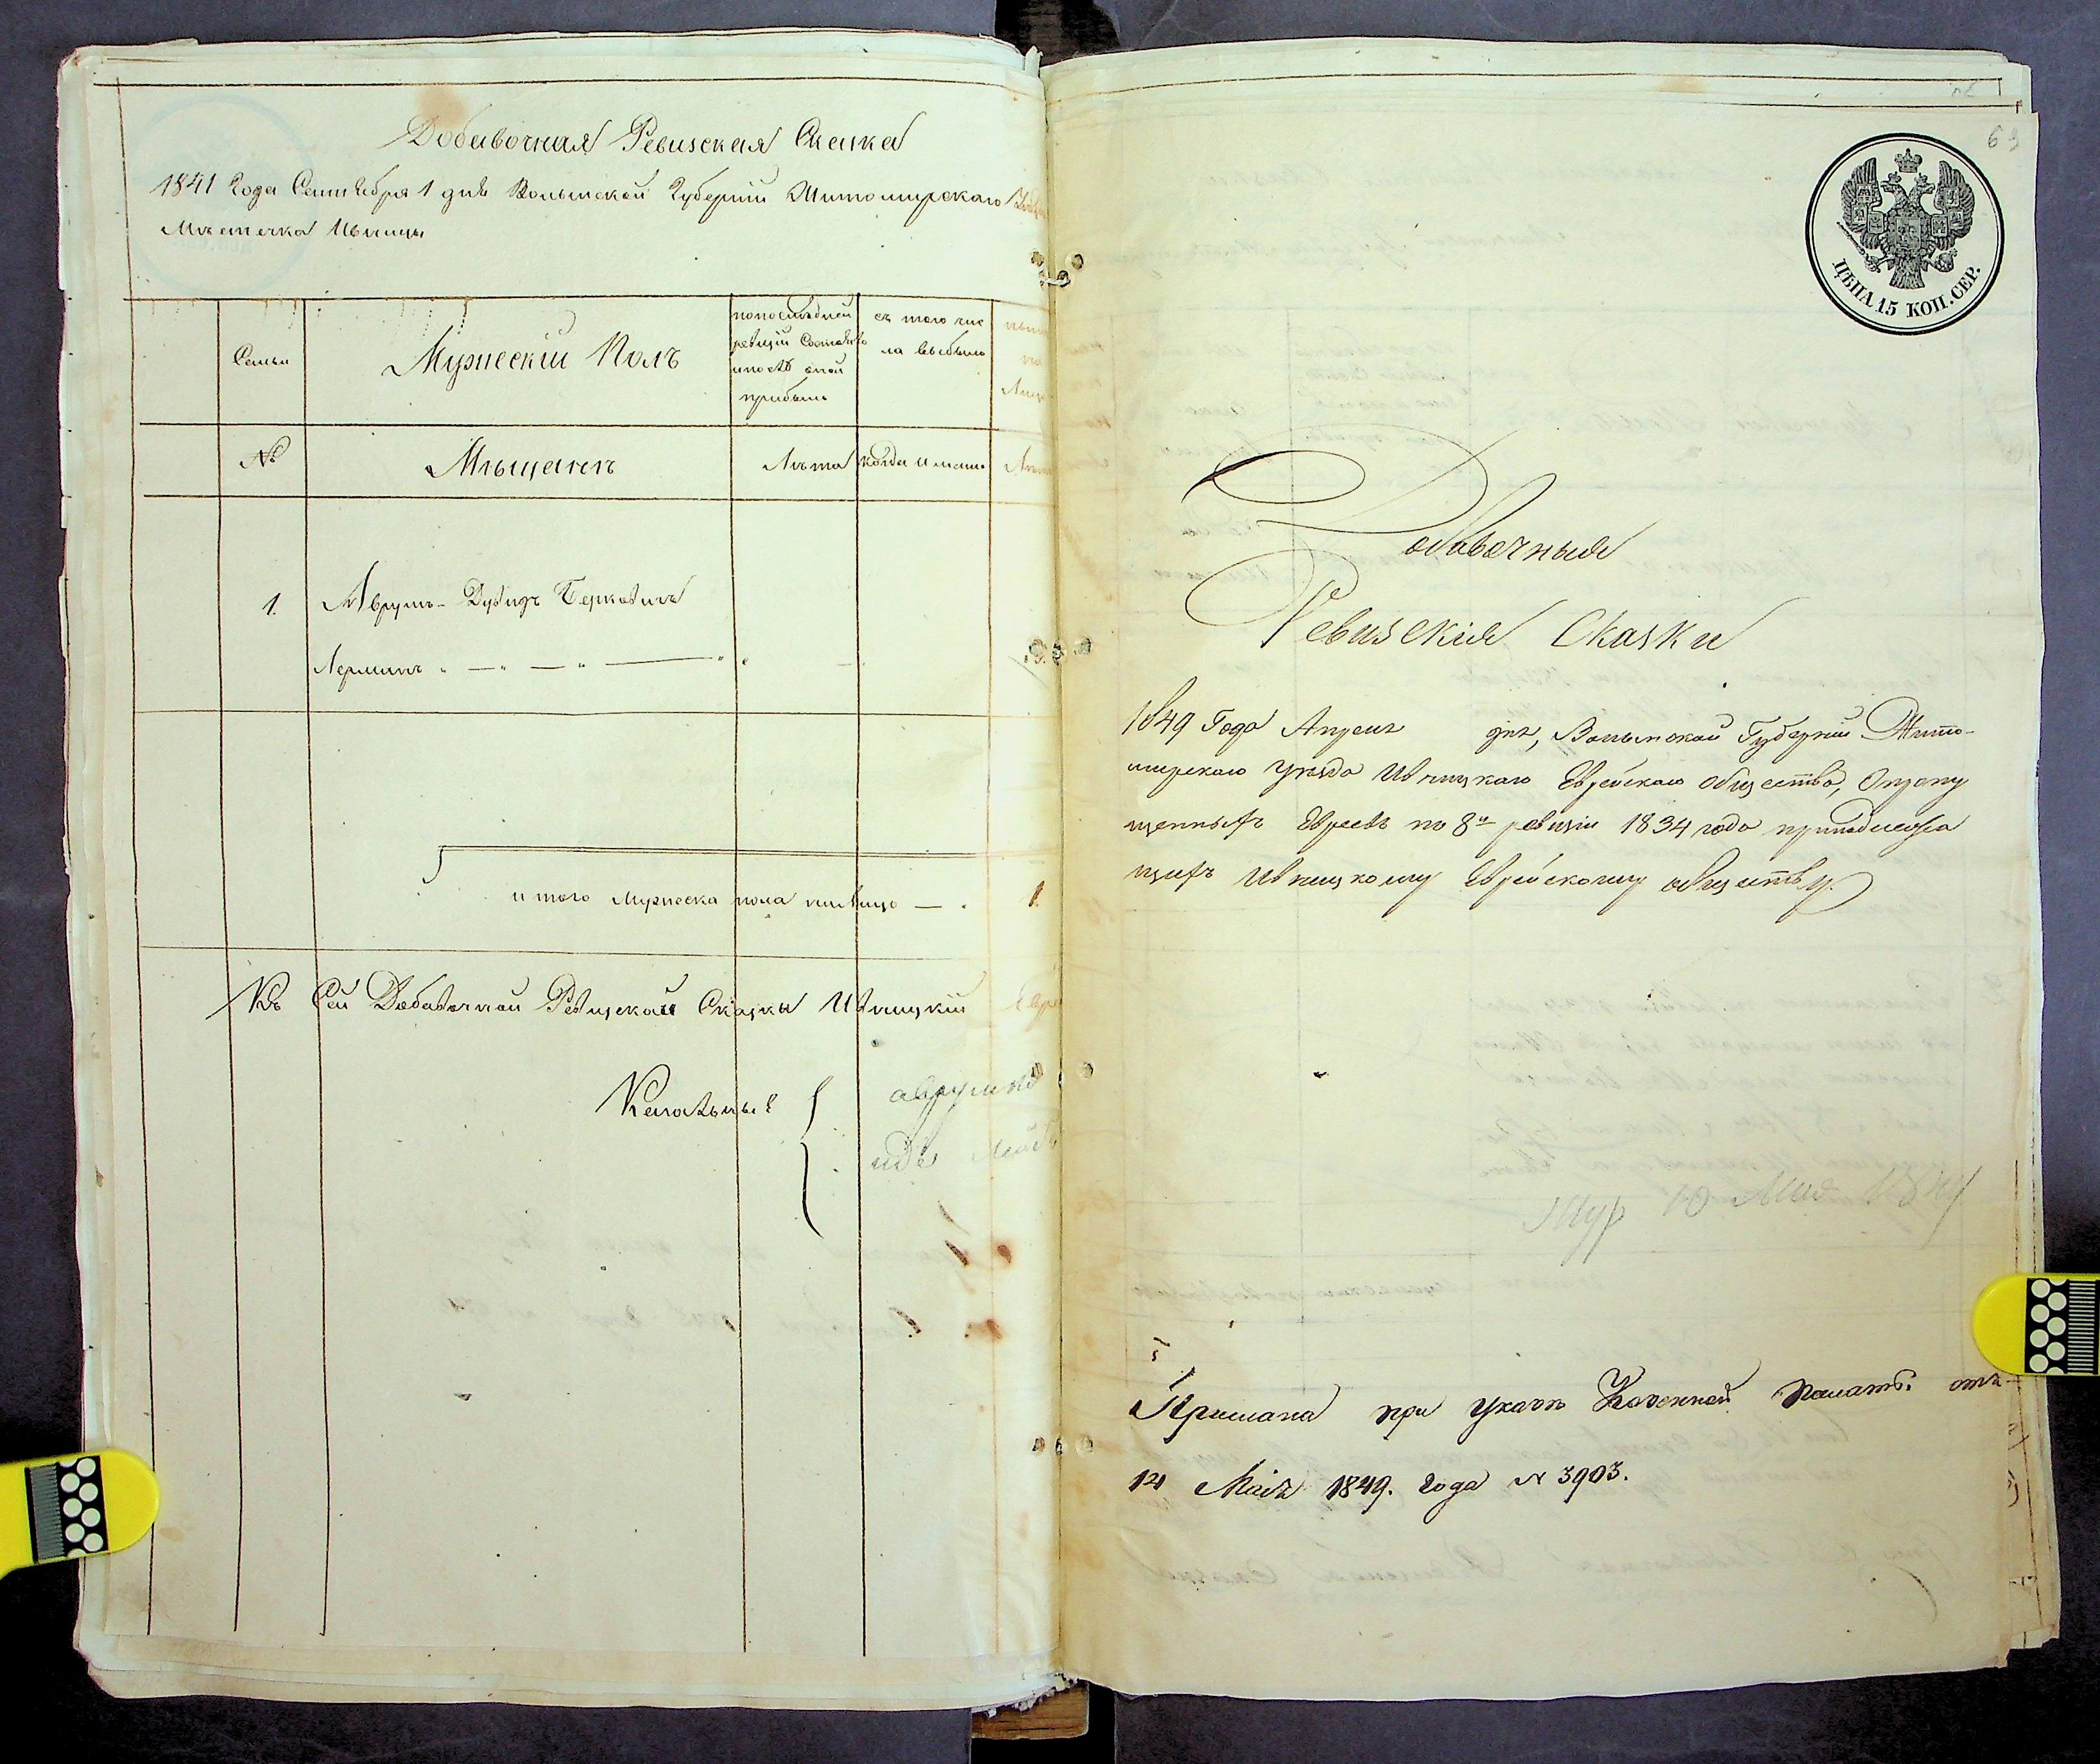 Добавочная Ревизская Сказка
1841 года Сентября 1 дня Волынской Губерніи Житомирскаго
Мѣстечка Ивницы
Семьи
Мужескій Полъ
по последней
ревизіи Состояло
и послѣ оной
прибыло
съ того чис
ла выбыло
№
Мѣщанъ
Лѣта
когда имянно
1.
Аврумъ-Дувидъ Берковичъ
Лерманъ
и того Мужеска пола на лицо — 1.
Къ Сей Добавочной Ревизской Сказки Ивницкій
Кагальные
63
ЦѢНА 15 КОП. СЕР.
Добавочныя
Ревизскія Сказки
1849 Года Апреля дня, Волынской Губерніи Жито-
мирскаго уезда Ивницкаго Еврейскаго общества, О пропу
щенныхъ Евреевъ по 8й ревизіи 1834 года
щихъ Ивницкому Еврейскому обществу.
10 Мая
Прислана при указѣ Казенной Палаты отъ
14 Маія 1849. года № 3903.